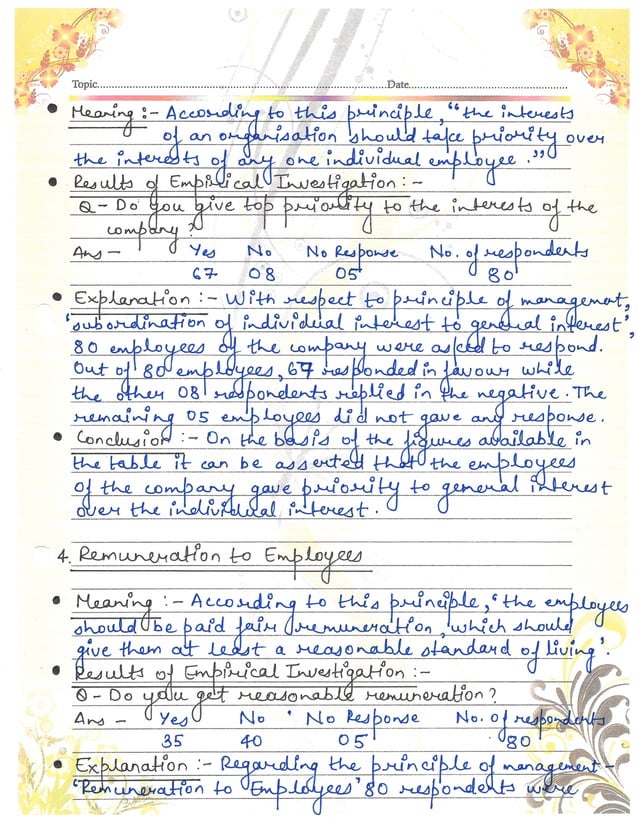 Topic Date
Meaning :- According to this principle, "the interests
of an organisation should take priority over
the interests of any one individual employee."
Results of Empirical Investigation :-
Q - Do you give top priority to the interests of the
company?
Ans - Yes No No Response No. of respondents
67 08 05 80
Explanation :- With respect to principle of management,
'subordination of individual interest to general interest',
80 employees of the company were asked to respond.
Out of 80 employees, 67 responded in favour while
the other 08 respondents replied in the negative. The
remaining 05 employees did not gave any response.
Conclusion :- On the basis of the figures available in
the table it can be asserted that the employees
of the company gave priority to general interest
over the individual interest.
4. Remuneration to Employees
Meaning :- According to this principle, 'the employees
should be paid fair remuneration, which should
give them at least a reasonable standard of living'.
Results of Empirical Investigation :-
Q - Do you get reasonable remuneration?
Ans - Yes No No Response No. of respondents
35 40 05 80
Explanation :- Regarding the principle of management -
'Remuneration to Employees' 80 respondents were